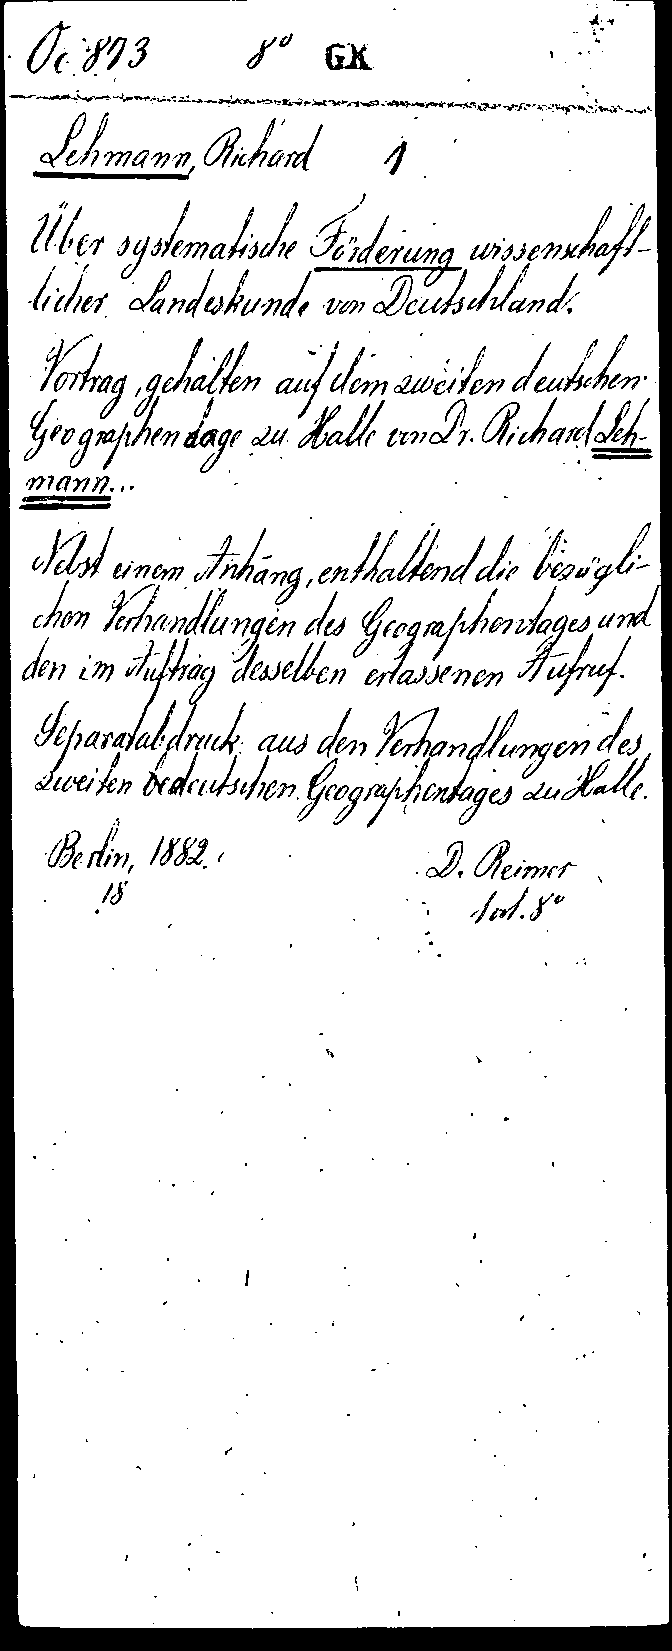 Oc 873 8° GK
Lehmann, Richard 1
Über systematische Förderung wissenschaft-
licher Landeskunde von Deutschland.
Vortrag, gehalten auf dem zweiten deutschen
Geographentage zu Halle von Dr. Richard Leh-
mann...
Nebst einem Anhang, enthaltend die bezügli-
chen Verhandlungen des Geographentages und
den im Auftrag desselben erlassenen Aufruf.
Separatabdruck aus den Verhandlungen des
zweiten deutschen Geographentages zu Halle.
Berlin, 1882. D. Reimer
18 8°